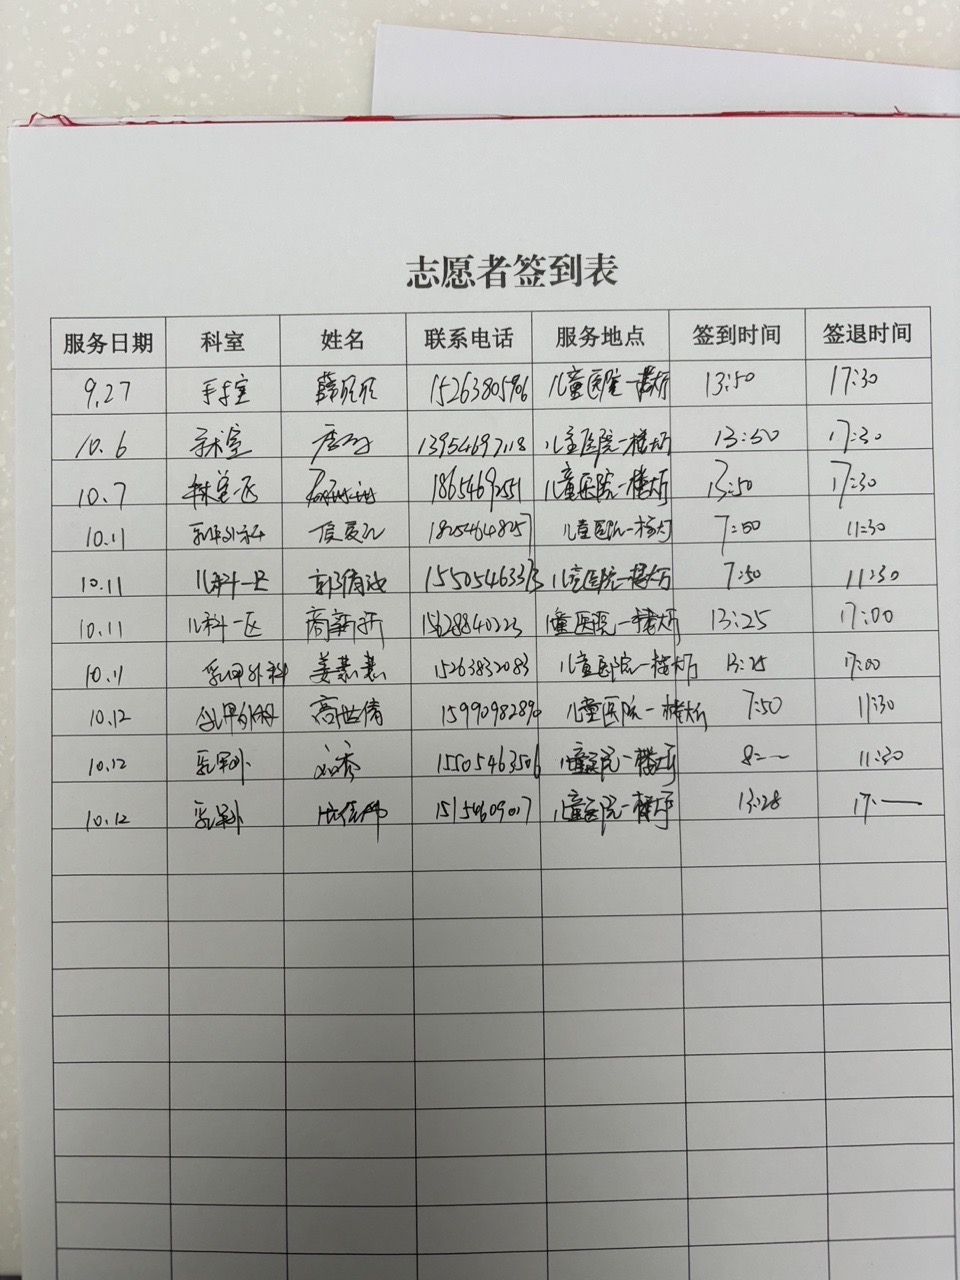 志愿者签到表
服务日期 科室 姓名 联系电话 服务地点 签到时间 签退时间
9.27 手术室 15263805906 儿童医院一楼大厅 13:50 17:30
10.6 手术室 13954697118 儿童医院一楼大厅 13:50 17:30
10.7 儿童医院一楼大厅 13:50 17:30
10.11 乳甲外科 18254648257 儿童医院一楼大厅 7:50 11:30
10.11 儿科一区 15505463313 儿童医院一楼大厅 7:50 11:30
10.11 儿科一区 商新新 儿童医院一楼大厅 13:25 17:00
10.11 乳甲外科 姜慧慧 15263832083 儿童医院一楼大厅 13:25 17:00
10.12 乳甲外科 高世倩 儿童医院一楼大厅 7:50 11:30
10.12 乳甲外 刘秀 15505463506 儿童医院一楼大厅 8:— 11:30
10.12 乳甲外 儿童医院一楼大厅 13:28 17:—